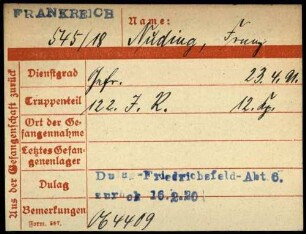 FRANKREICH Name:
545/18 Nüding, Franz
Aus der Gefangenschaft zurück
Dienstgrad Gefr. 23.4.91.
Truppenteil 122. J. R. 12. Kp.
Ort der Gefangennahme
Letztes Gefangenenlager
Dulag Du a-Friedrichsfeld-Abt 6.
zurück 16.2.20
Bemerkungen 064409
Form.